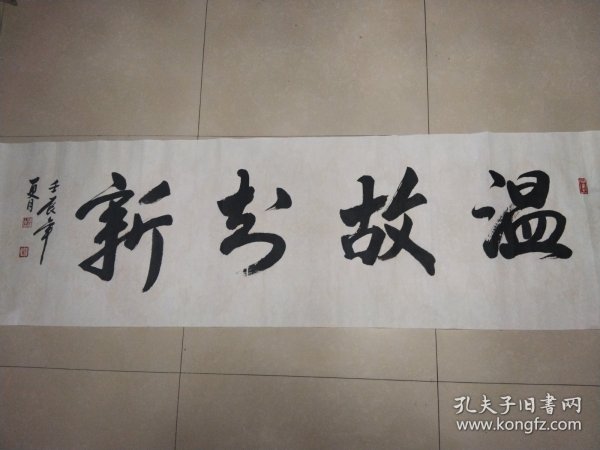 温故知新
壬辰年
夏月
孔夫子旧书网
www.kongfz.com